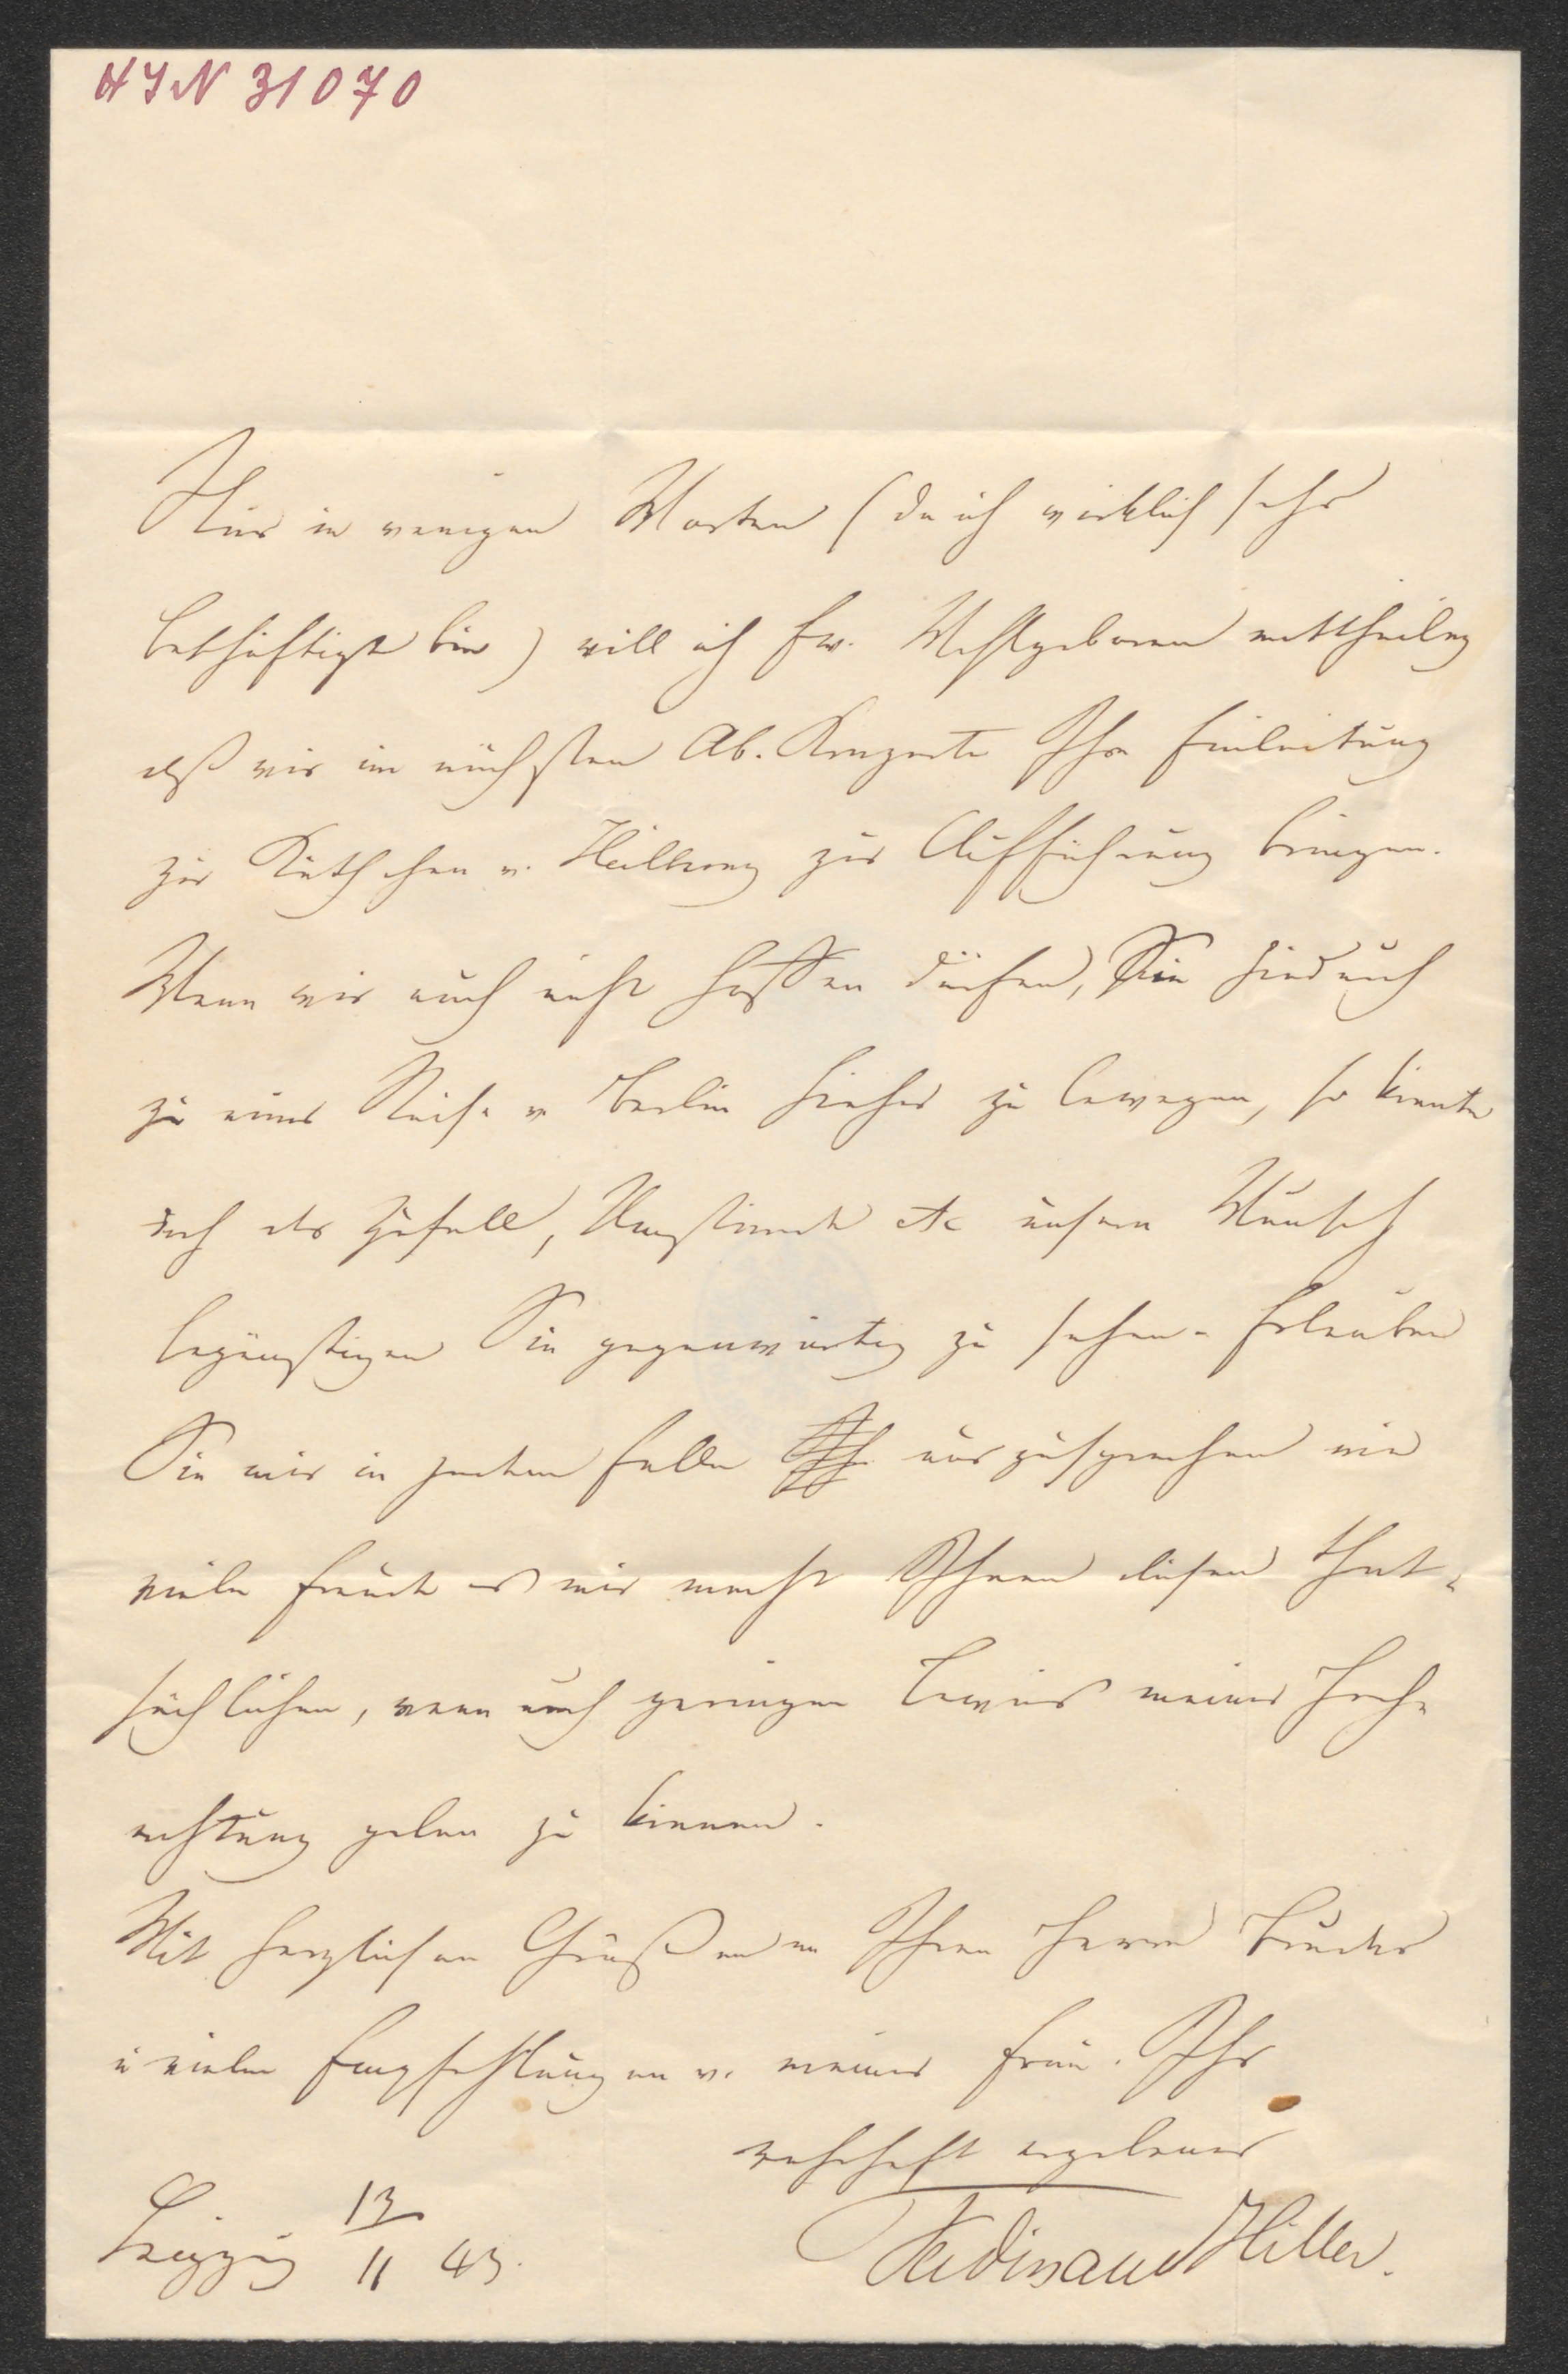 HJN 31070
Nur in wenigen Worten (da ich wirklich sehr
beschäftigt bin) will ich Ew. Wohlgeboren mittheilen
daß wir im nächsten Ab. Konzerte Ihre Einleitung
zur Käthchen v. Heilbronn zur Aufführung bringen.
Wenn wir auch nicht hoffen dürfen, Sie hiedurch
zu einer Reise v. Berlin hieher zu bewegen, so könnte
doch der Zufall, Umstände etc unsern Wunsch
begünstigen Sie gegenwärtig zu sehen. Erlauben
Sie mir in jedem Falle auszusprechen wie
viele Freude es mir macht Ihnen diesen that-
sächlichen, wenn auch geringen Beweis meiner Hoch-
achtung geben zu können.
Mit herzlichen Grüßen an Ihren Herrn Bruder
u vielen Empfehlungen v. meiner Frau. Ihr
wahrhaft ergebener
Leipzig 13/11 43. Ferdinand Hiller.